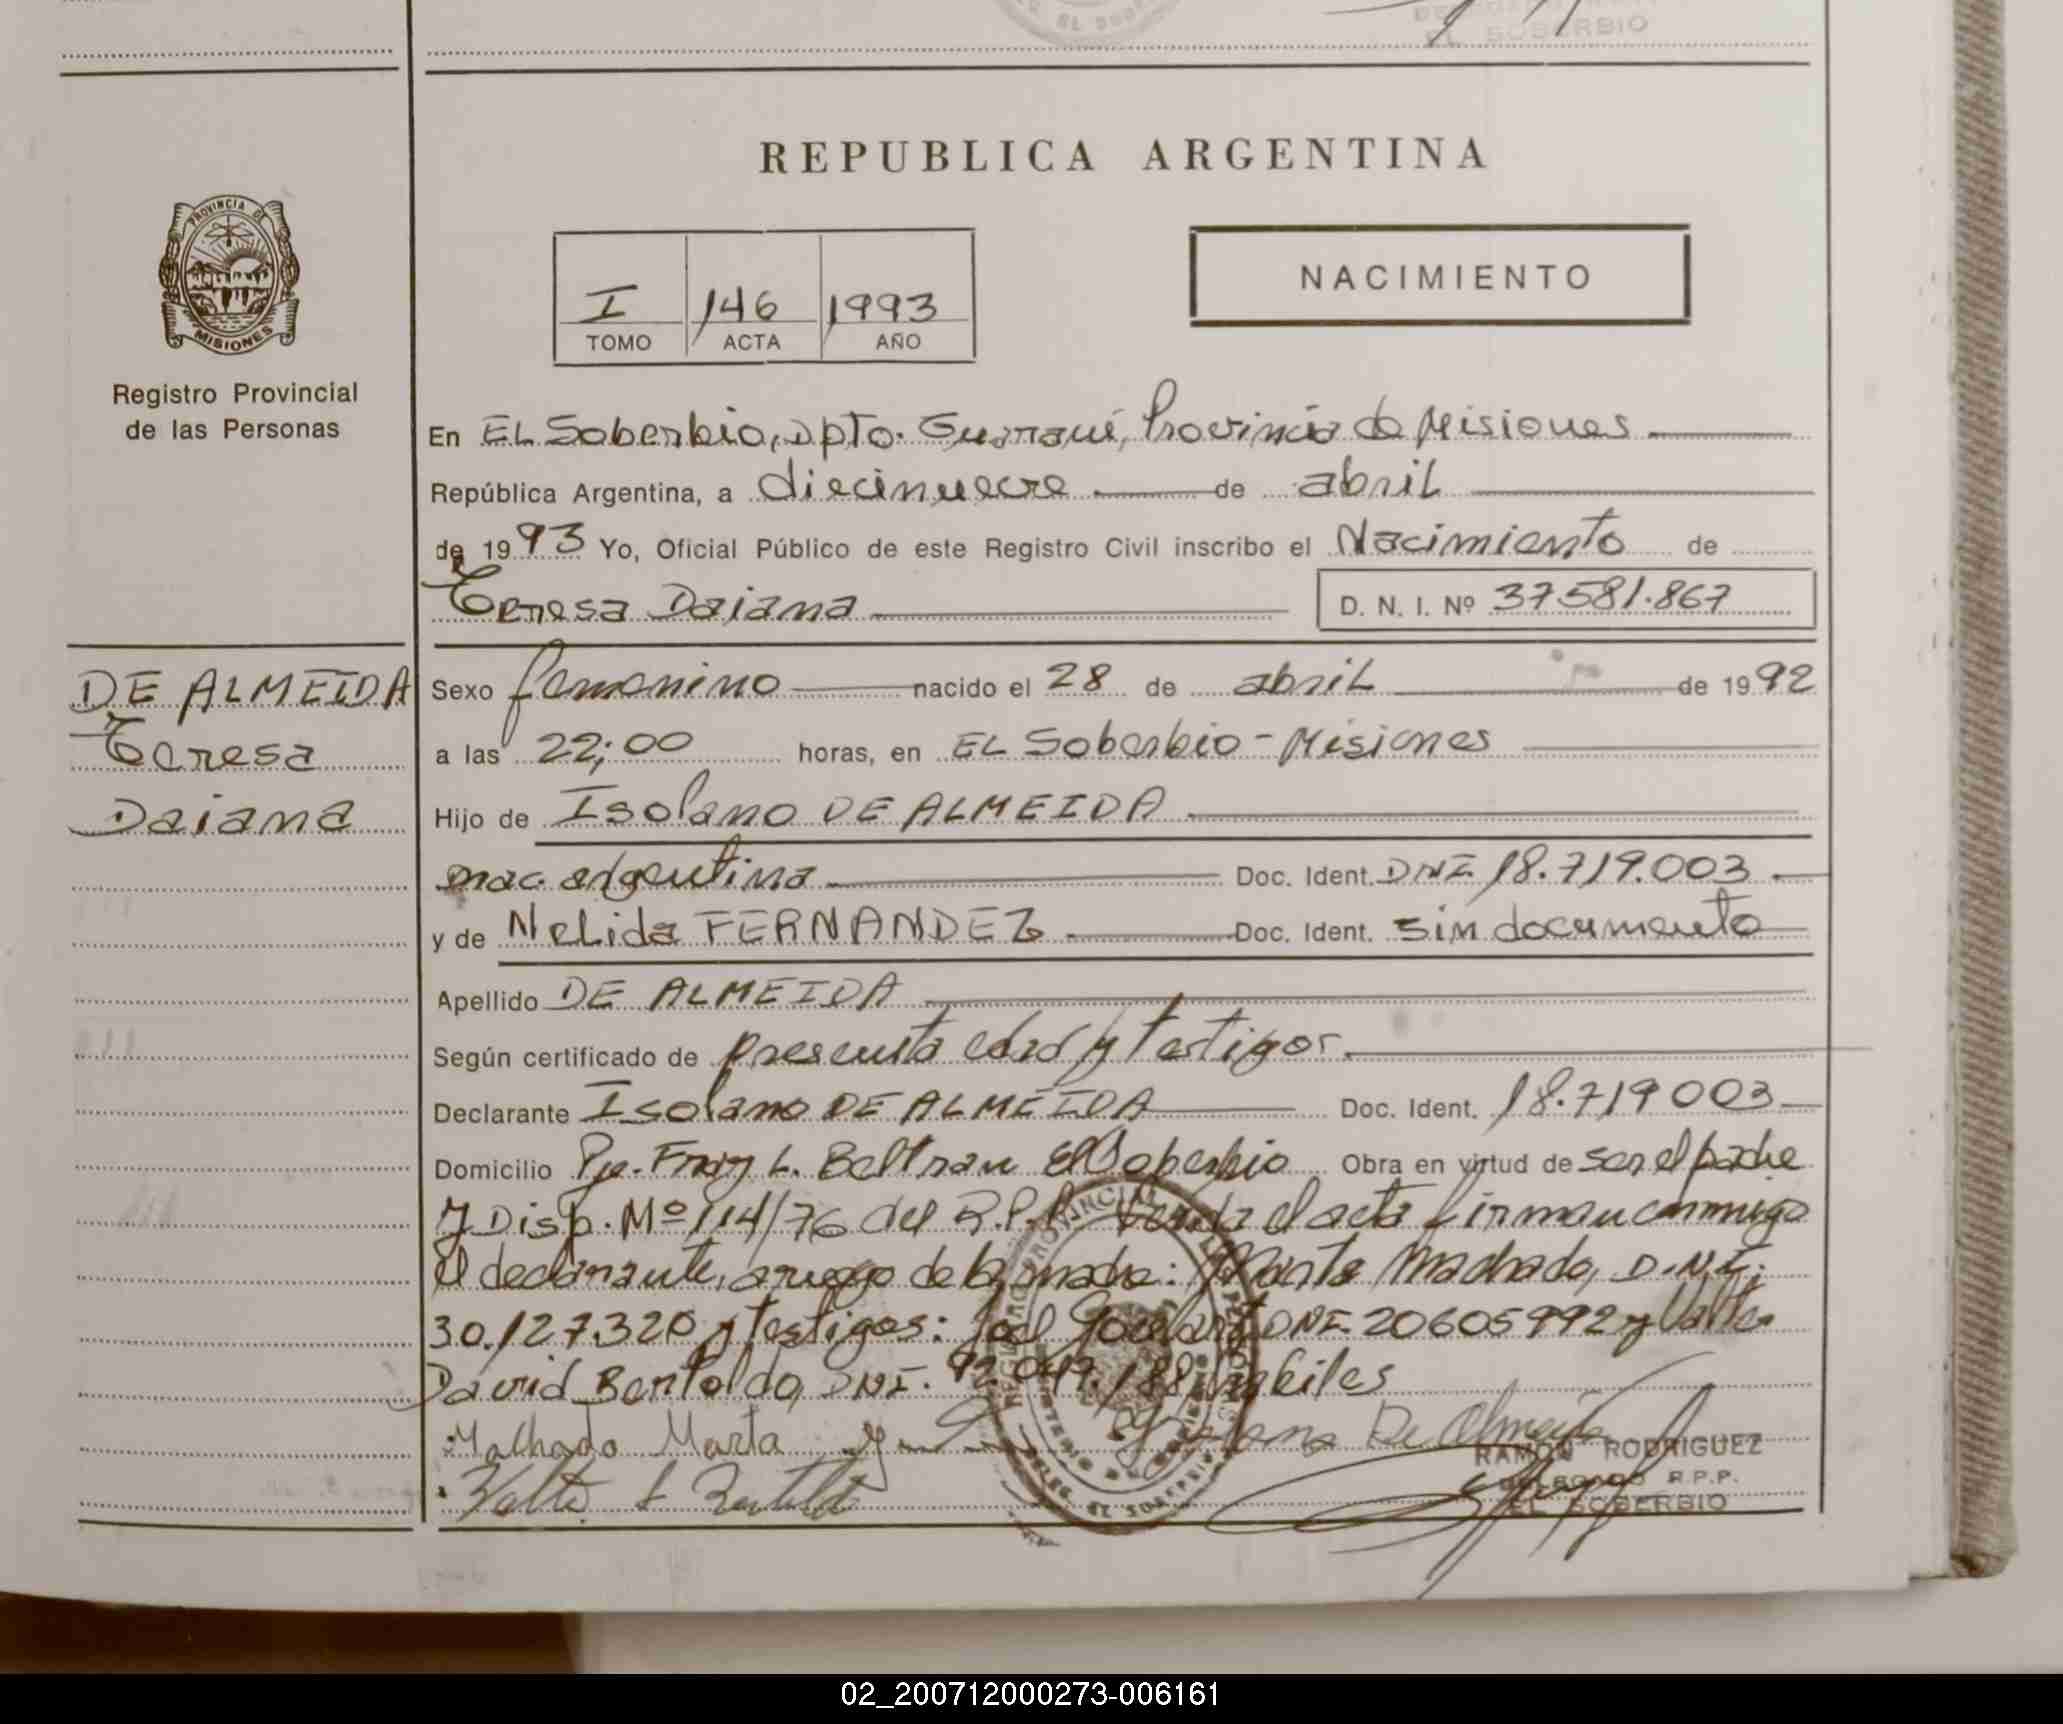 EL SOBERBIO
REPUBLICA ARGENTINA
PROVINCIA DE
MISIONES
Registro Provincial
de las Personas
I 146 1993
TOMO ACTA AÑO
NACIMIENTO
En EL Soberbio, Dpto. Guaraní, Provincia de Misiones
República Argentina, a diecinueve de abril
de 1993 Yo, Oficial Público de este Registro Civil inscribo el Nacimiento de
Teresa Daiana D. N. I. Nº 37.581.867
DE ALMEIDA
Teresa
Daiana
Sexo femenino nacido el 28 de abril de 1992
a las 22;00 horas, en EL Soberbio - Misiones
Hijo de Isolano DE ALMEIDA
nac. argentina Doc. Ident. DNI 18.719.003
y de Nelida FERNANDEZ Doc. Ident. sin documento
Apellido DE ALMEIDA
Según certificado de presunta edad y testigos
Declarante Isolano DE ALMEIDA Doc. Ident. 18.719003
Domicilio Pje. Fray L. Beltran El Soberbio Obra en virtud de ser el padre
y Disp. Nº 114/76 del R.P.P. el acta firman conmigo
el declarante, a ruego de la madre: Marta Machado, D.N.I.
30.127.320 y testigos: Joel DNI 20605992 y Valter
David Bertoldo, DNI. 92.047.188, habiles
Malhado Marta Isolano De Almeida
RAMON RODRIGUEZ
DELEGADO R.P.P.
EL SOBERBIO
02_200712000273-006161